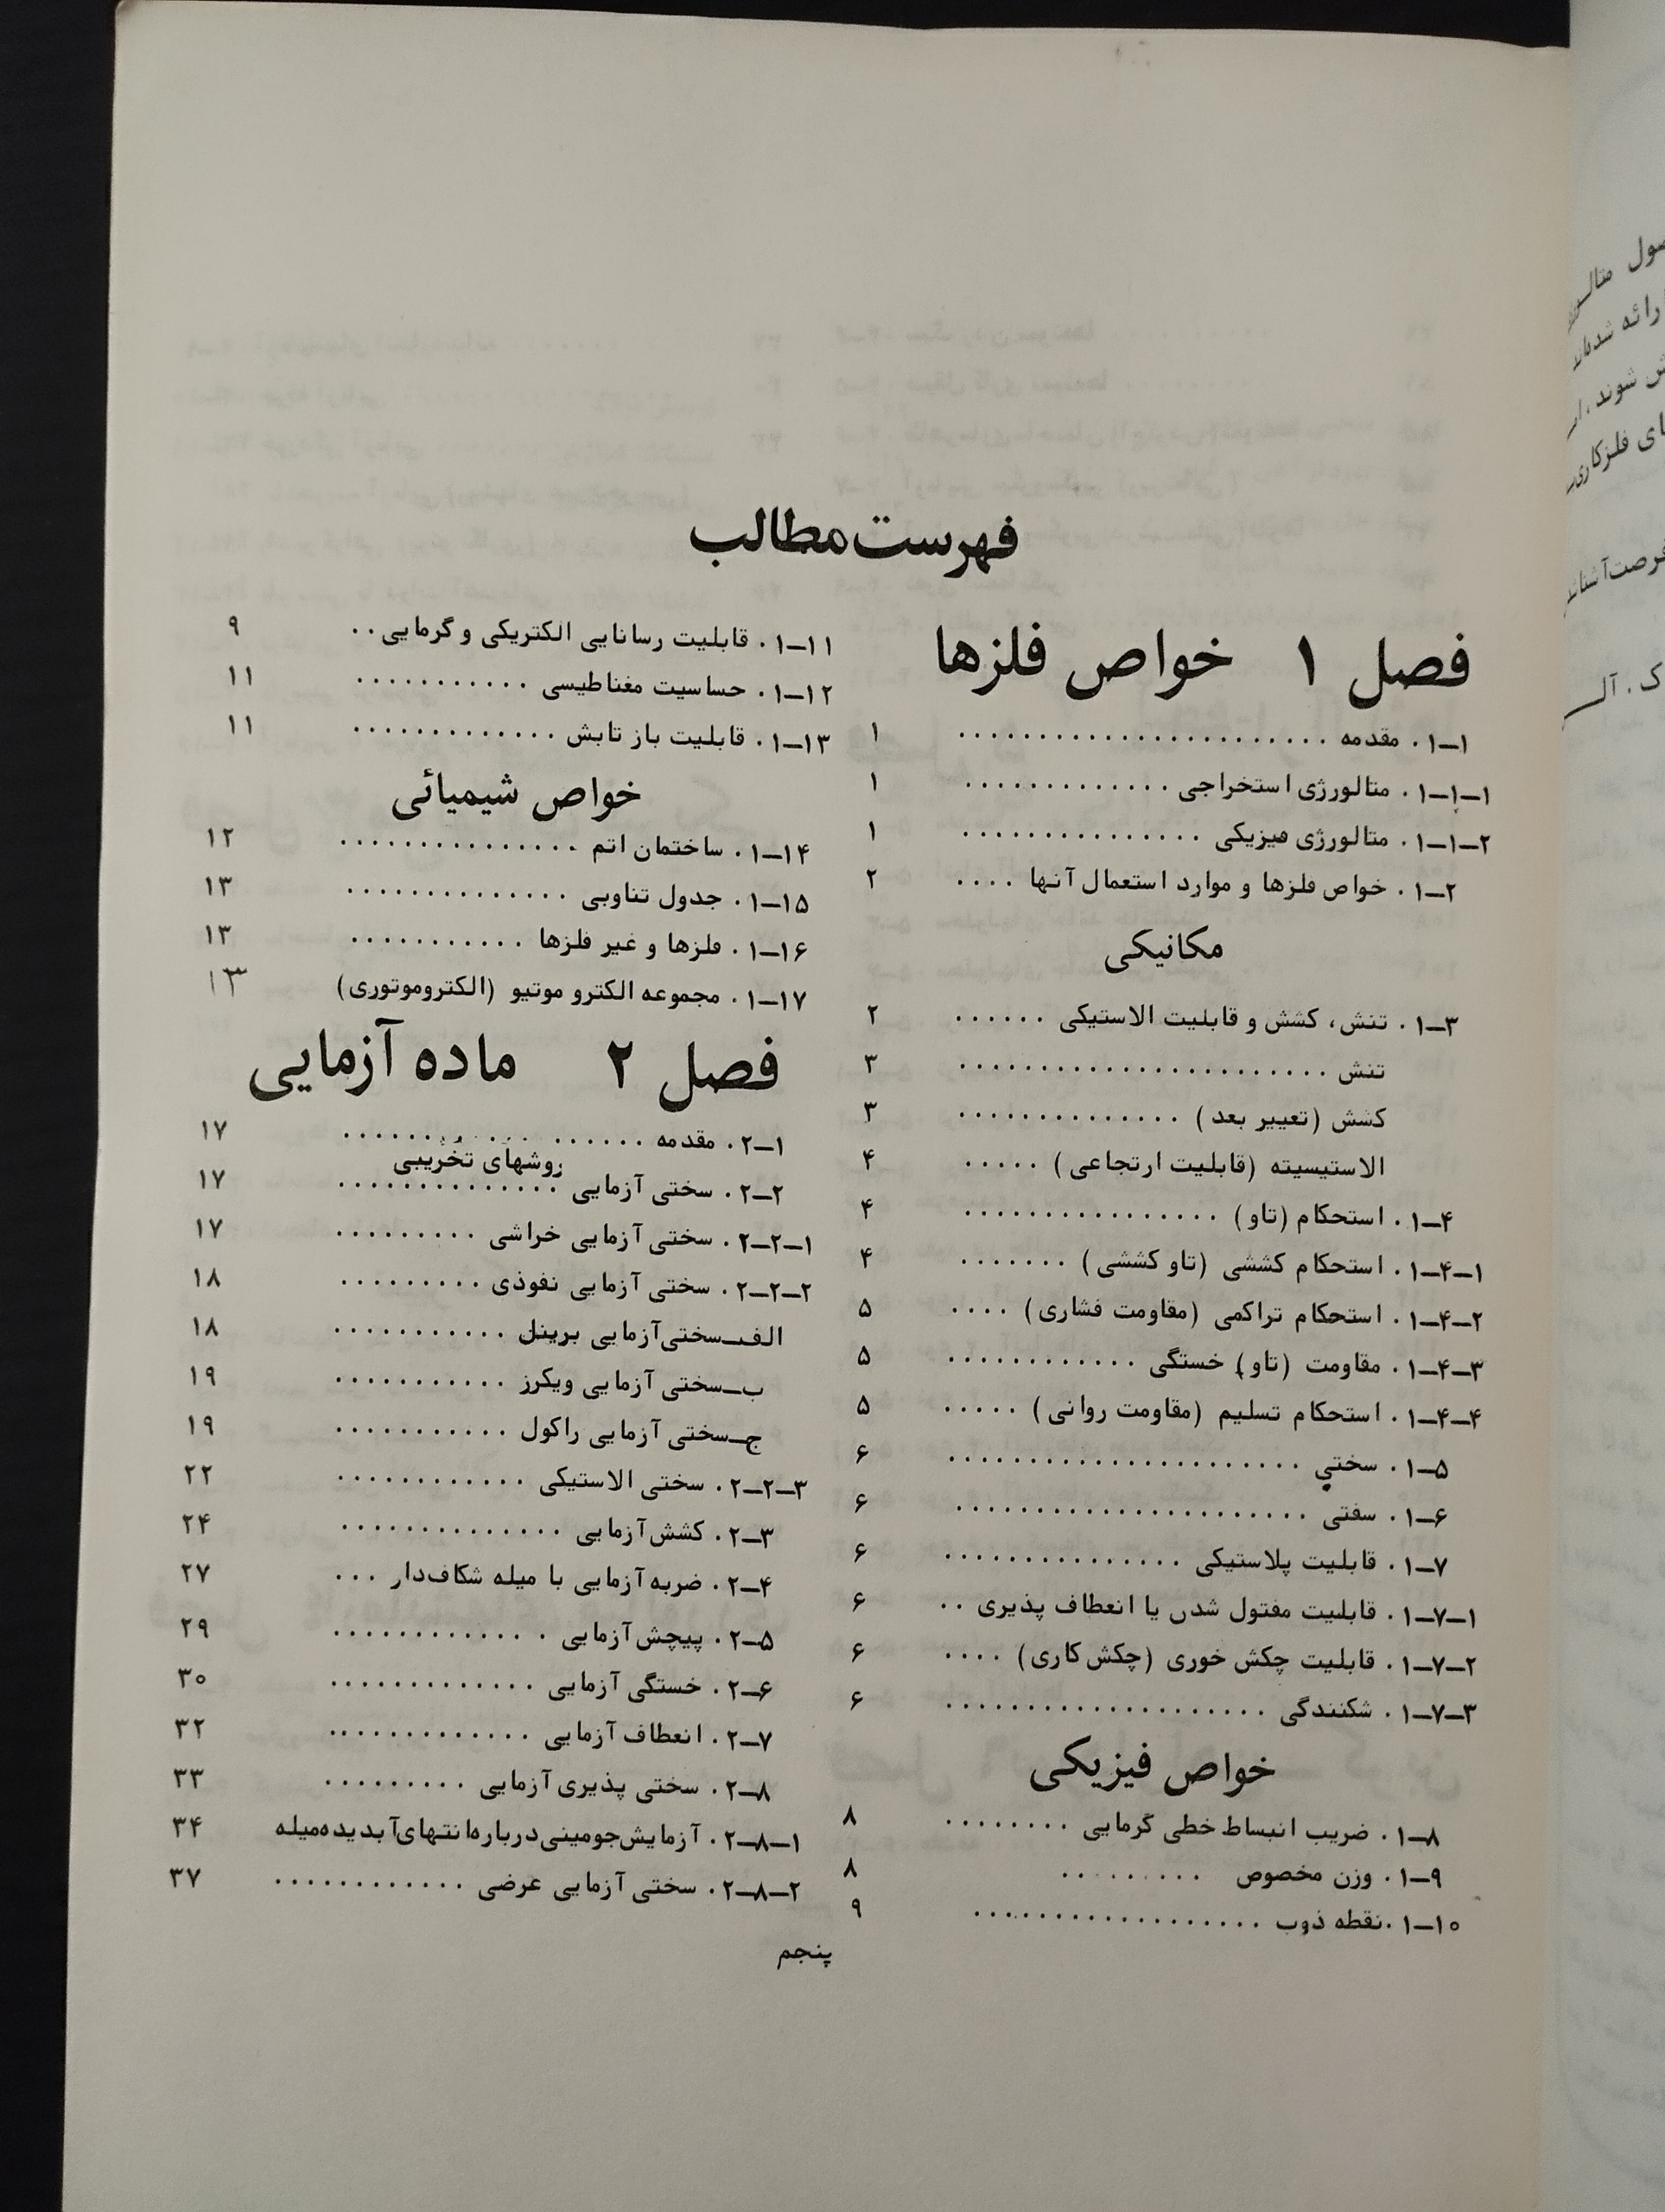 فهرست مطالب
فصل ۱ خواص فلزها
۱–۱. مقدمه ........................ ۱
۱–۱–۱. متالورژی استخراجی .............. ۱
۱–۱–۲. متالورژی فیزیکی ................ ۱
۱–۲. خواص فلزها و موارد استعمال آنها .... ۲
مکانیکی
۱–۳. تنش، کشش و قابلیت الاستیکی ...... ۲
تنش ........................ ۳
کشش (تعییر بعد) ............... ۳
الاستیسیته (قابلیت ارتجاعی) ..... ۴
۱–۴. استحکام (تاو) ................. ۴
۱–۴–۱. استحکام کششی (تاو کششی) ....... ۴
۱–۴–۲. استحکام تراکمی (مقاومت فشاری) .... ۵
۱–۴–۳. مقاومت (تاو) خستگی ............ ۵
۱–۴–۴. استحکام تسلیم (مقاومت روانی) ..... ۵
۱–۵. سختی ....................... ۶
۱–۶. سفتی ....................... ۶
۱–۷. قابلیت پلاستیکی ................ ۶
۱–۷–۱. قابلیت مفتول شدن یا انعطاف پذیری .. ۶
۱–۷–۲. قابلیت چکش خوری (چکش کاری) .... ۶
۱–۷–۳. شکنندگی ..................... ۶
خواص فیزیکی
۱–۸. ضریب انبساط خطی گرمایی ........ ۸
۱–۹. وزن مخصوص ......... ۸
۱–۱۰. نقطه ذوب ................... ۹
۱–۱۱. قابلیت رسانایی الکتریکی و گرمایی .. ۹
۱–۱۲. حساسیت مغناطیسی ........... ۱۱
۱–۱۳. قابلیت باز تابش ............. ۱۱
خواص شیمیائی
۱–۱۴. ساختمان اتم ................ ۱۲
۱–۱۵. جدول تناوبی ............... ۱۳
۱–۱۶. فلزها و غیر فلزها ........... ۱۳
۱–۱۷. مجموعه الکترو موتیو (الکتروموتوری) ۱۳
فصل ۲ ماده آزمایی
۲–۱. مقدمه .................... ۱۷
روشهای تخریبی
۲–۲. سختی آزمایی ............... ۱۷
۲–۲–۱. سختی آزمایی خراشی ......... ۱۷
۲–۲–۲. سختی آزمایی نفوذی ......... ۱۸
الف–سختی آزمایی برینل ........... ۱۸
ب–سختی آزمایی ویکرز ........... ۱۹
ج–سختی آزمایی راکول ........... ۱۹
۲–۲–۳. سختی الاستیکی ............ ۲۲
۲–۳. کشش آزمایی .............. ۲۴
۲–۴. ضربه آزمایی با میله شکاف‌دار ... ۲۷
۲–۵. پیچش آزمایی .............. ۲۹
۲–۶. خستگی آزمایی ............. ۳۰
۲–۷. انعطاف آزمایی ............. ۳۲
۲–۸. سختی پذیری آزمایی ......... ۳۳
۲–۸–۱. آزمایش جومینی درباره انتهای آبدیده میله ۳۴
۲–۸–۲. سختی آزمایی عرضی ............ ۳۷
پنجم